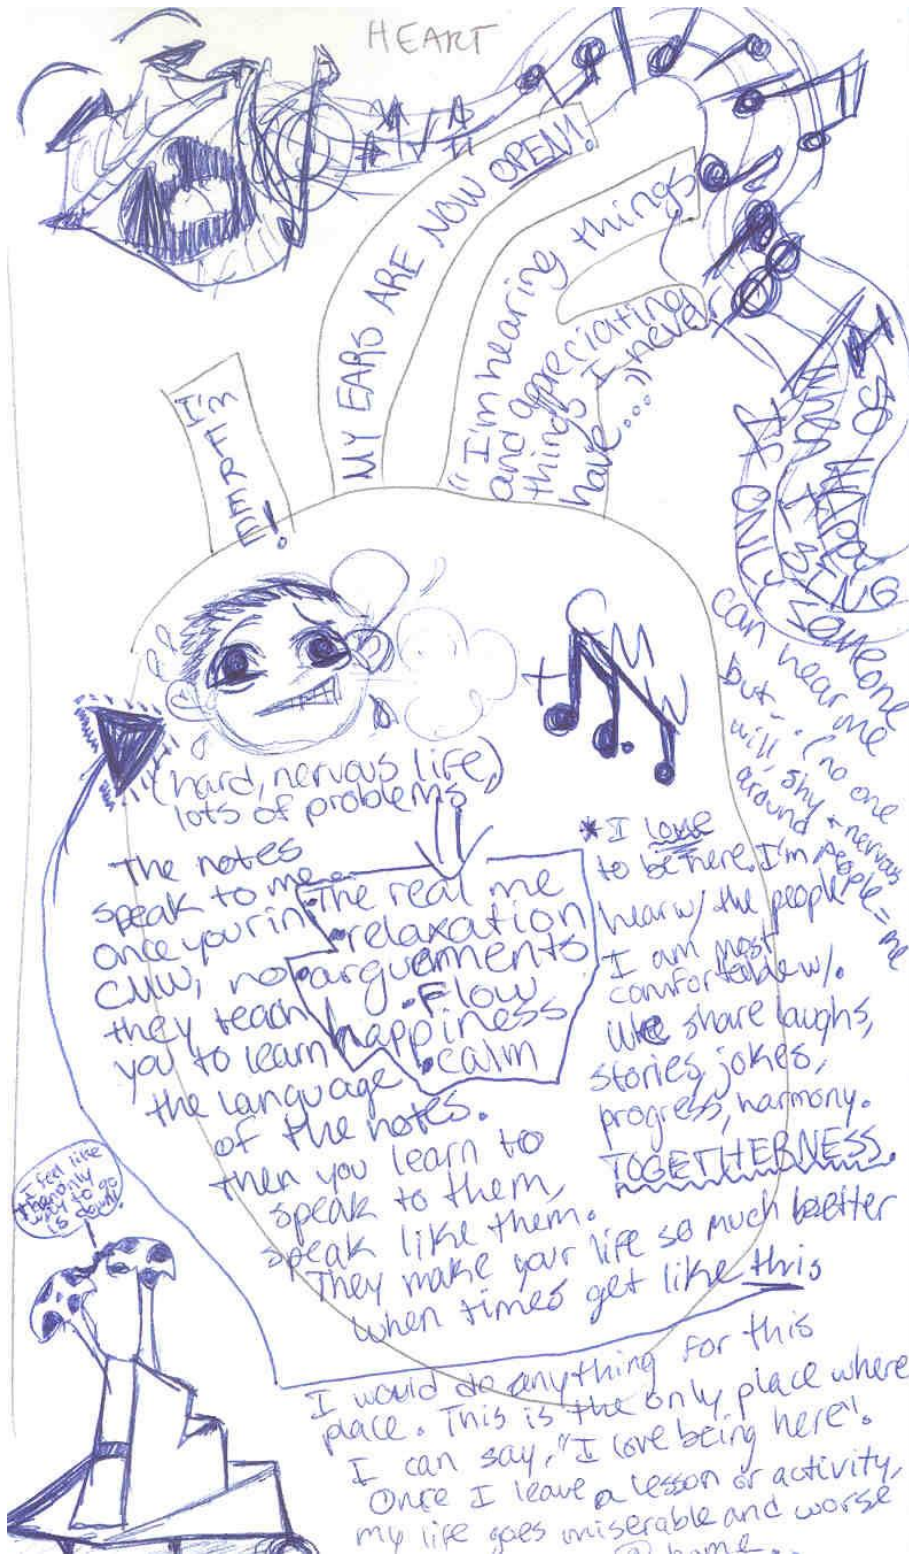 HEART
MY EARS ARE NOW OPEN!
"I'm hearing things
and appreciating
things I never
have...."
!
SO HAPPY
WHEN I SING
ONLY IF
someone
can hear me
but
no one
will, shy + nervous
around
people = me
CMW
(hard, nervous life,)
lots of problems
The notes
speak to me
once your in
CMW, no
they teach
you to learn
the language
of the notes.
then you learn to
speak to them,
speak like them.
They make your life so much better
when times get like this
The real me
•relaxation
•arguements
•Flow
happiness
•calm
*I love
to be here. I'm
hear w/ the people
I am most
comfortable w/.
We share laughs,
stories, jokes,
progress, harmony.
TOGETHERNESS.
I feel like
the only
way to go
is down!
I would do anything for this
place. This is the only place where
I can say, "I love being here".
Once I leave a lesson or activity,
my life goes miserable and worse
@ home...